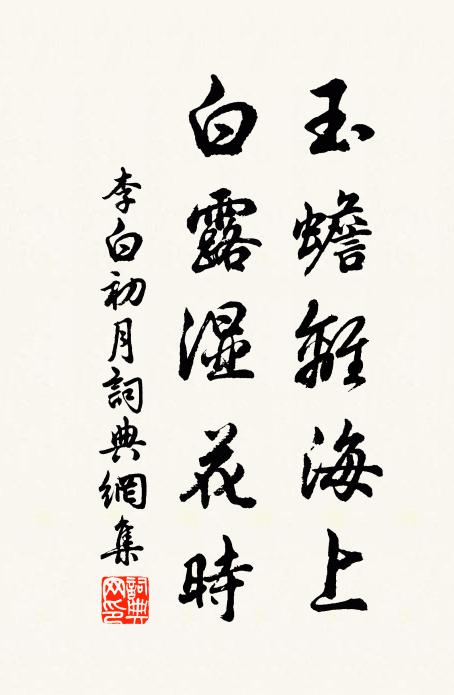 玉蟾離海上
白露湿花時
李白初月詞典網集
詞典網印